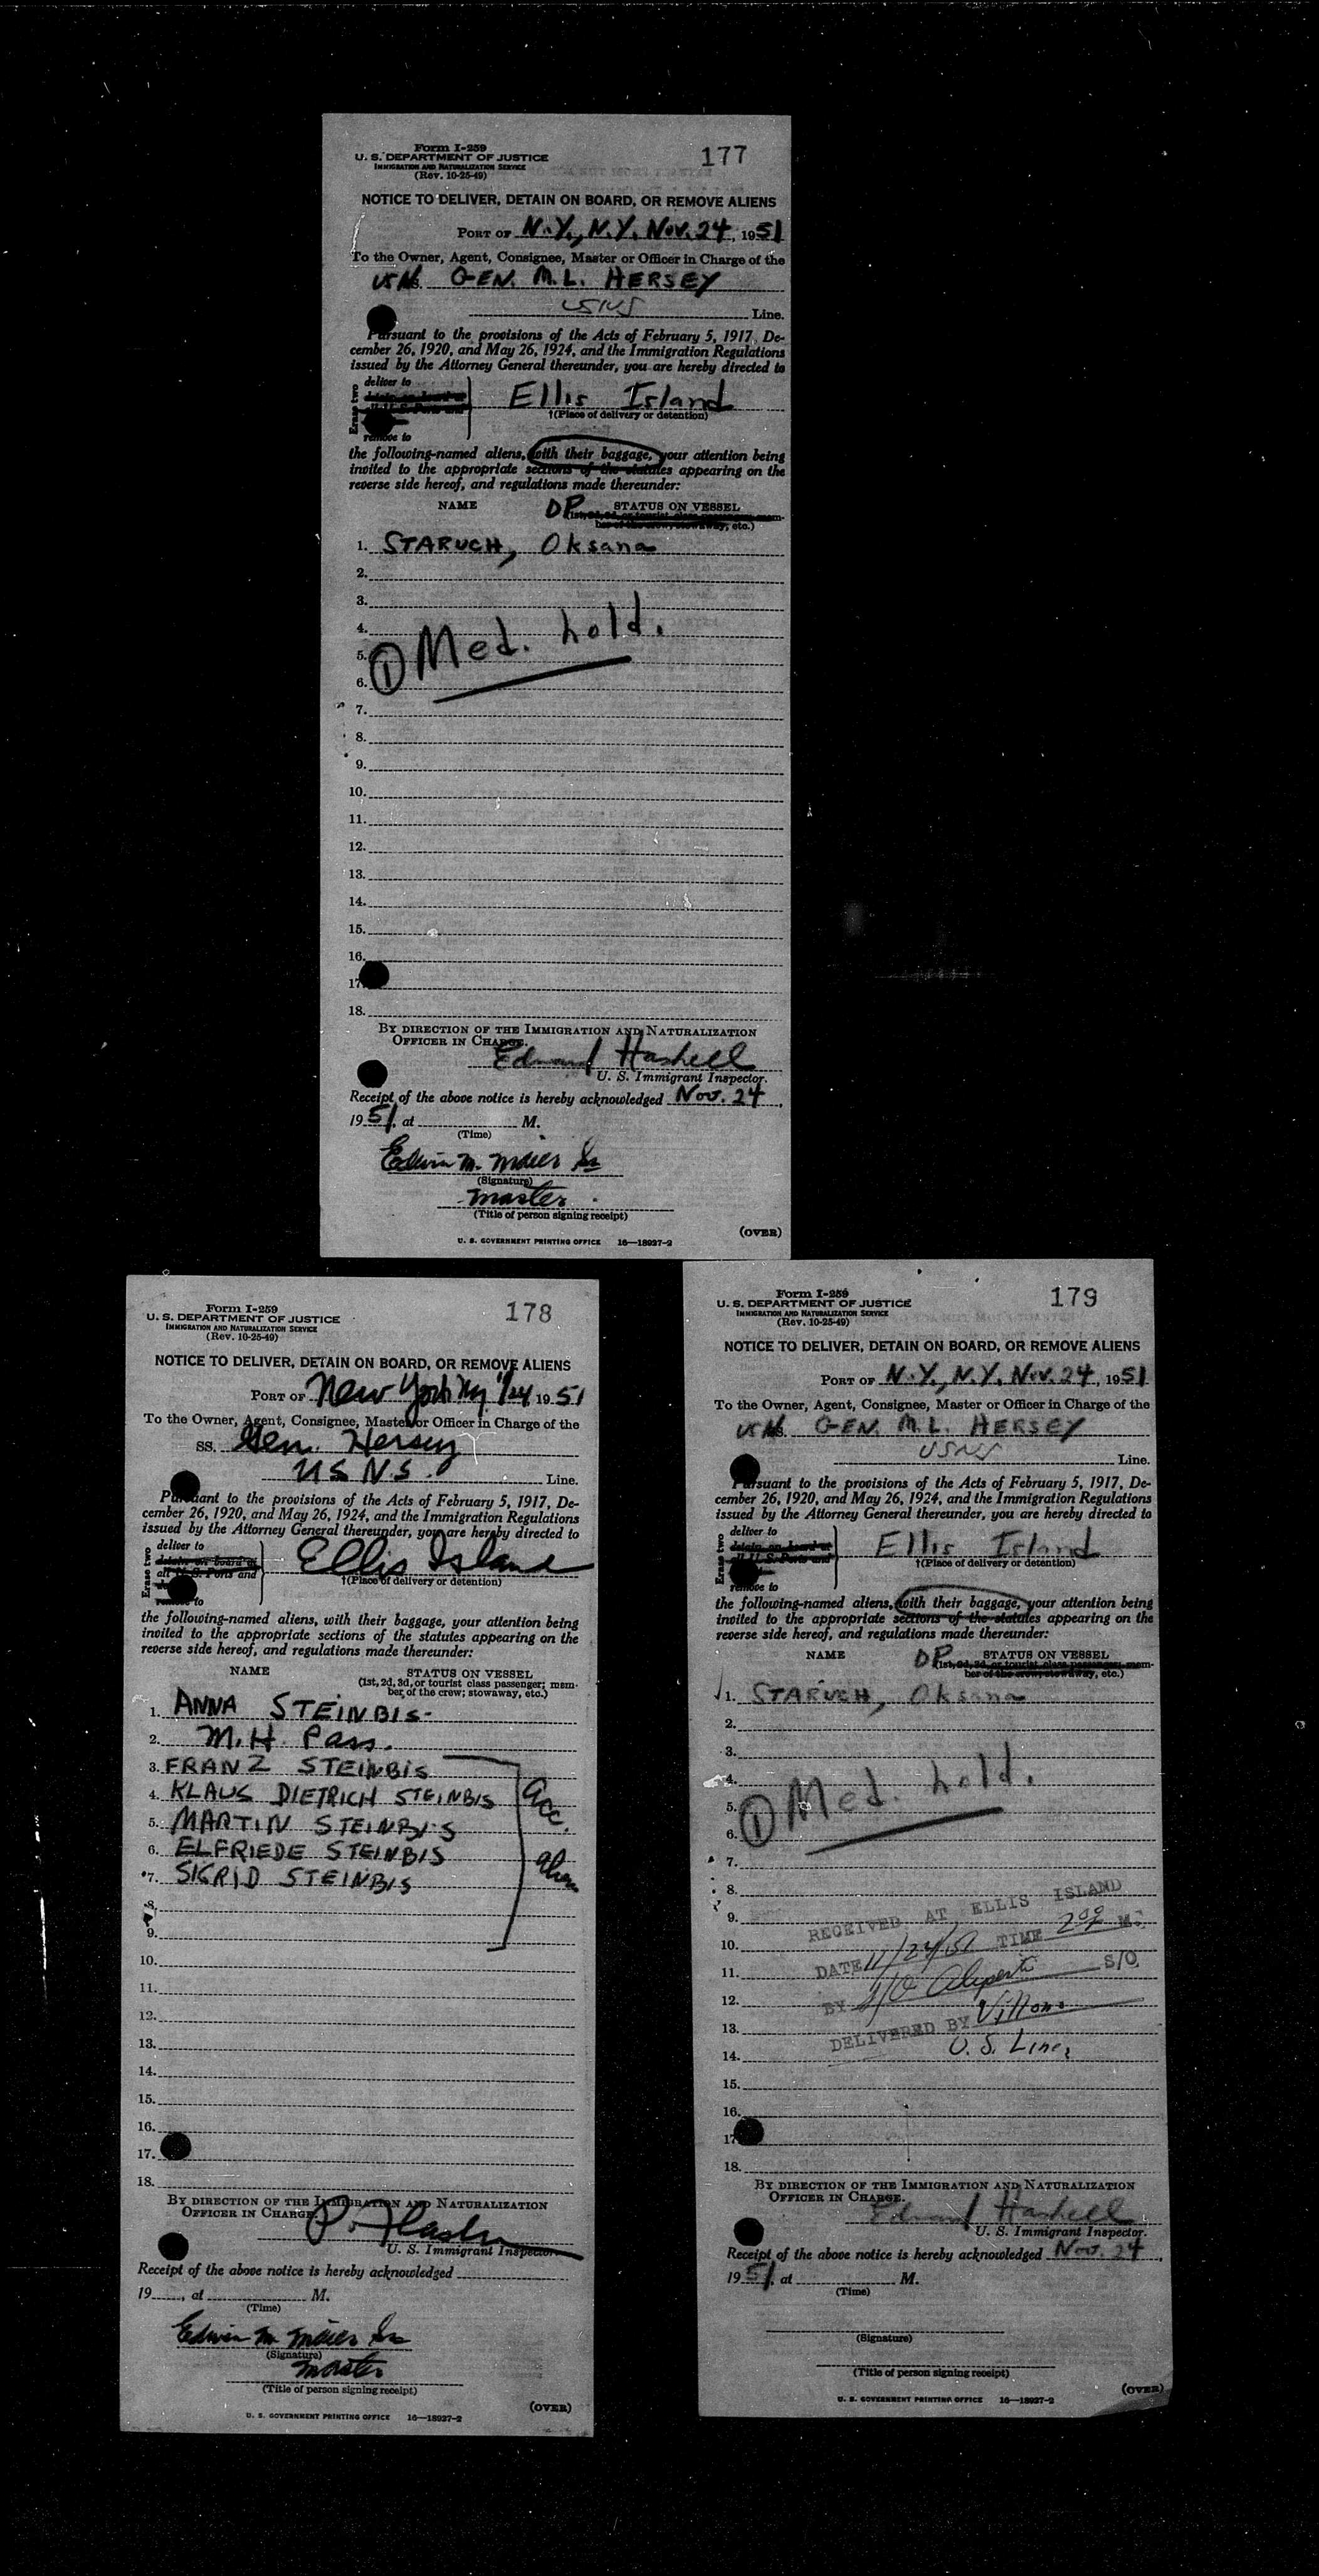 Form I-259
U. S. DEPARTMENT OF JUSTICE
IMMIGRATION AND NATURALIZATION SERVICE
(Rev. 10-25-49)
177
NOTICE TO DELIVER, DETAIN ON BOARD, OR REMOVE ALIENS
PORT OF N.Y., N.Y. Nov. 24, 1951
To the Owner, Agent, Consignee, Master or Officer in Charge of the
USNS. GEN. M.L. HERSEY
USNS Line.
Pursuant to the provisions of the Acts of February 5, 1917, De-
cember 26, 1920, and May 26, 1924, and the Immigration Regulations
issued by the Attorney General thereunder, you are hereby directed to
Erase two
deliver to
remove to
Ellis Island
†(Place of delivery or detention)
the following-named aliens, with their baggage, your attention being
invited to the appropriate sections of the statutes appearing on the
reverse side hereof, and regulations made thereunder:
NAME DP STATUS ON VESSEL
(1st, 2d, 3d, or tourist class passenger; mem-
ber of the crew; stowaway, etc.)
1. STARUCH, Oksana
2.
3.
4.
5. ① Med. hold.
6.
7.
8.
9.
10.
11.
12.
13.
14.
15.
16.
17.
18.
BY DIRECTION OF THE IMMIGRATION AND NATURALIZATION
OFFICER IN CHARGE.
Edward Haskell
U. S. Immigrant Inspector.
Receipt of the above notice is hereby acknowledged Nov. 24,
1951, at M.
(Time)
Edwin M. Maier Sr
(Signature)
Master
(Title of person signing receipt)
(OVER)
U. S. GOVERNMENT PRINTING OFFICE 16—18927-2
Form I-259
U. S. DEPARTMENT OF JUSTICE
IMMIGRATION AND NATURALIZATION SERVICE
(Rev. 10-25-49)
178
NOTICE TO DELIVER, DETAIN ON BOARD, OR REMOVE ALIENS
PORT OF New York NY 11/24 1951
To the Owner, Agent, Consignee, Master or Officer in Charge of the
SS. Gen. Hersey
USNS. Line.
Pursuant to the provisions of the Acts of February 5, 1917, De-
cember 26, 1920, and May 26, 1924, and the Immigration Regulations
issued by the Attorney General thereunder, you are hereby directed to
Erase two
deliver to
detain on board at
all U. S. Ports and
remove to
Ellis Island
†(Place of delivery or detention)
the following-named aliens, with their baggage, your attention being
invited to the appropriate sections of the statutes appearing on the
reverse side hereof, and regulations made thereunder:
NAME STATUS ON VESSEL
(1st, 2d, 3d, or tourist class passenger; mem-
ber of the crew; stowaway, etc.)
1. ANNA STEINBIS-
2. M.H. Pass.
3. FRANZ STEINBIS
4. KLAUS DIETRICH STEINBIS acc.
5. MARTIN STEINBIS
6. ELFRIEDE STEINBIS
7. SIGRID STEINBIS
8.
9.
10.
11.
12.
13.
14.
15.
16.
17.
18.
BY DIRECTION OF THE IMMIGRATION AND NATURALIZATION
OFFICER IN CHARGE.
U. S. Immigrant Inspector.
Receipt of the above notice is hereby acknowledged
19 , at M.
(Time)
Edwin M. Maier Sr
(Signature)
Master
(Title of person signing receipt)
(OVER)
U. S. GOVERNMENT PRINTING OFFICE 16—18927-2
Form I-259
U. S. DEPARTMENT OF JUSTICE
IMMIGRATION AND NATURALIZATION SERVICE
(Rev. 10-25-49)
179
NOTICE TO DELIVER, DETAIN ON BOARD, OR REMOVE ALIENS
PORT OF N.Y., N.Y. Nov. 24, 1951
To the Owner, Agent, Consignee, Master or Officer in Charge of the
USNS. GEN. M.L. HERSEY
USNS Line.
Pursuant to the provisions of the Acts of February 5, 1917, De-
cember 26, 1920, and May 26, 1924, and the Immigration Regulations
issued by the Attorney General thereunder, you are hereby directed to
Erase two
deliver to
detain on board at
all U. S. Ports and
remove to
Ellis Island
†(Place of delivery or detention)
the following-named aliens, with their baggage, your attention being
invited to the appropriate sections of the statutes appearing on the
reverse side hereof, and regulations made thereunder:
NAME DP STATUS ON VESSEL
(1st, 2d, 3d, or tourist class passenger; mem-
ber of the crew; stowaway, etc.)
1. STARUCH, Oksana
2.
3.
4.
5. ① Med. hold.
6.
7.
8.
9. RECEIVED AT ELLIS ISLAND
10. DATE 11/24/51 TIME 2 M.
11. BY S/O S/O
12.
13. DELIVERED BY
14. U. S. Lines
15.
16.
17.
18.
BY DIRECTION OF THE IMMIGRATION AND NATURALIZATION
OFFICER IN CHARGE.
Edward Haskell
U. S. Immigrant Inspector.
Receipt of the above notice is hereby acknowledged Nov. 24,
1951, at M.
(Time)
(Signature)
(Title of person signing receipt)
(OVER)
U. S. GOVERNMENT PRINTING OFFICE 16—18927-2